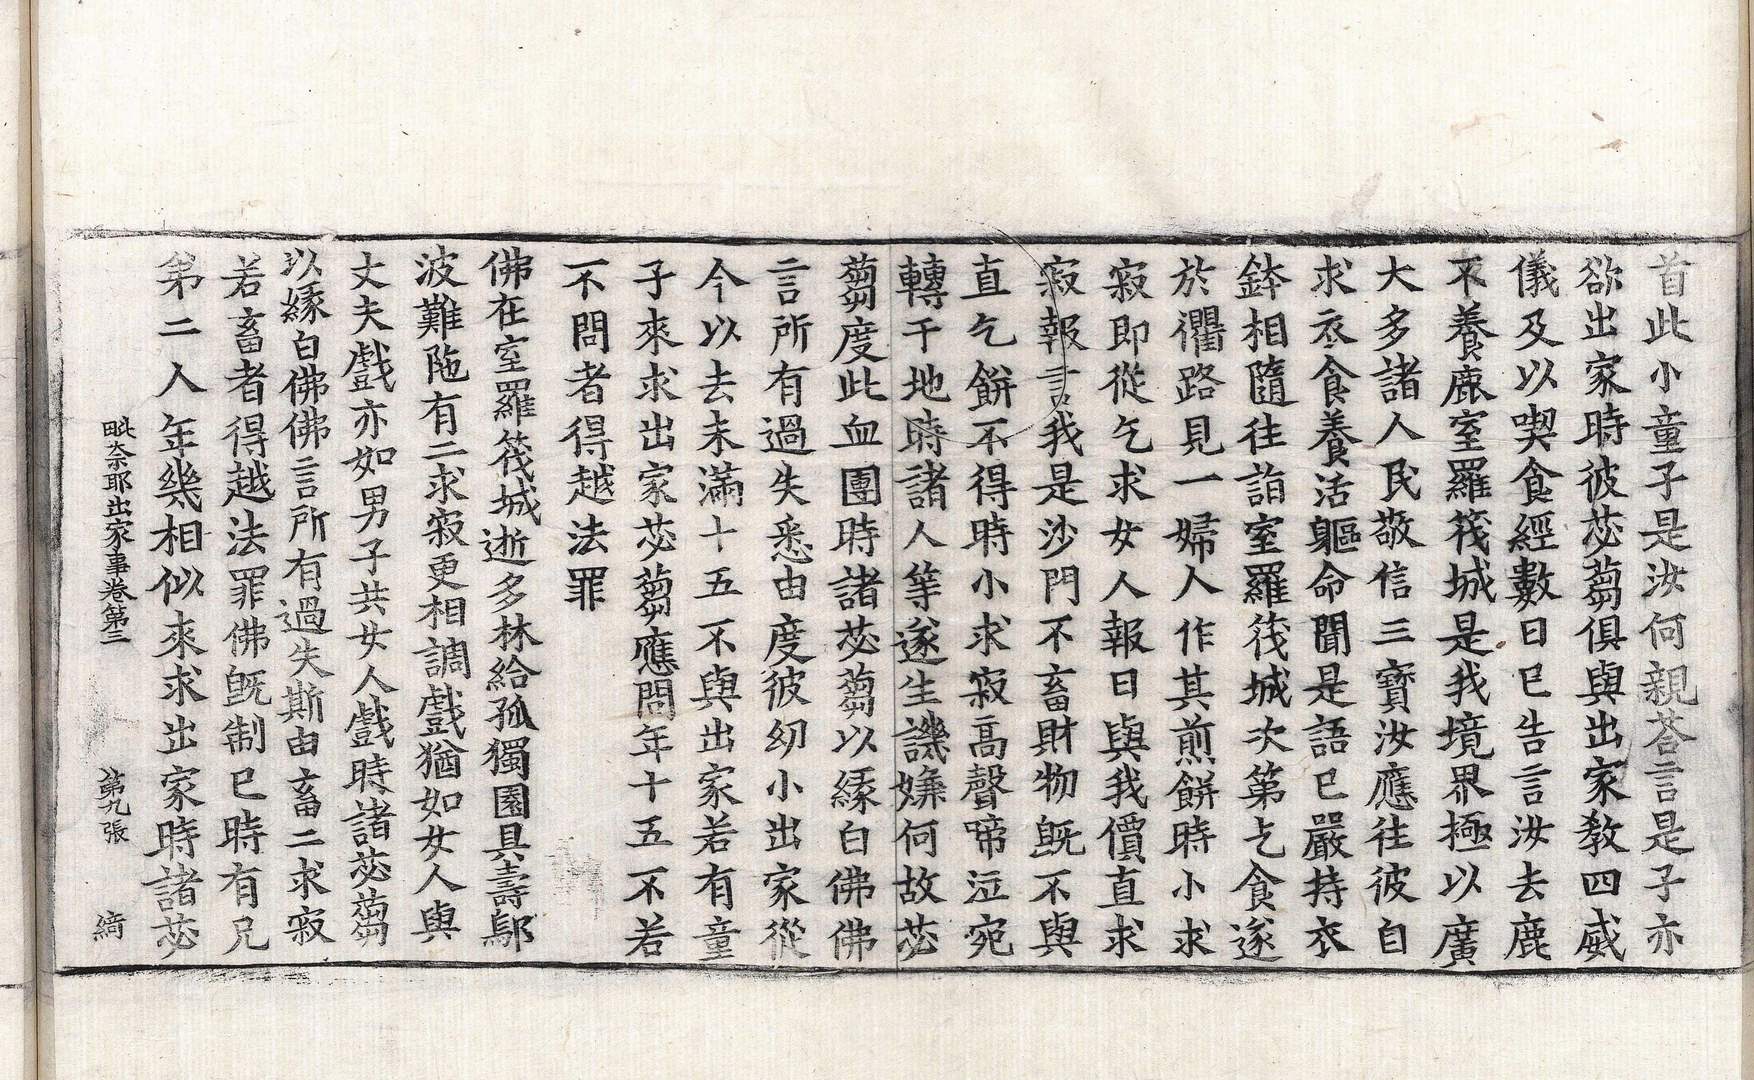 首此小童子是汝何親荅言是子亦
欲出家時彼苾蒭俱與出家教四威
儀及以喫食經數日已告言汝去鹿
不養鹿室羅筏城是我境界極以廣
大多諸人民敬信三寶汝應往彼自
求衣食養活軀命聞是語已嚴持衣
鉢相隨往詣室羅筏城次第乞食遂
於衢路見一婦人作其煎餅時小求
寂即從乞求女人報曰與我價直求
寂報言我是沙門不畜財物旣不與
直乞餅不得時小求寂高聲啼泣宛
轉于地時諸人等遂生譏嫌何故苾
蒭度此血團時諸苾蒭以緣白佛佛
言所有過失悉由度彼幼小出家從
今以去未滿十五不與出家若有童
子來求出家苾蒭應問年十五不若
不問者得越法罪
佛在室羅筏城逝多林給孤獨園具壽鄔
波難陁有二求寂更相調戲猶如女人與
丈夫戲亦如男子共女人戲時諸苾蒭
以緣白佛佛言所有過失斯由畜二求寂
若畜者得越法罪佛旣制已時有兄
第二人年幾相似來求出家時諸苾
毗奈耶出家事卷第三 第九張 綺